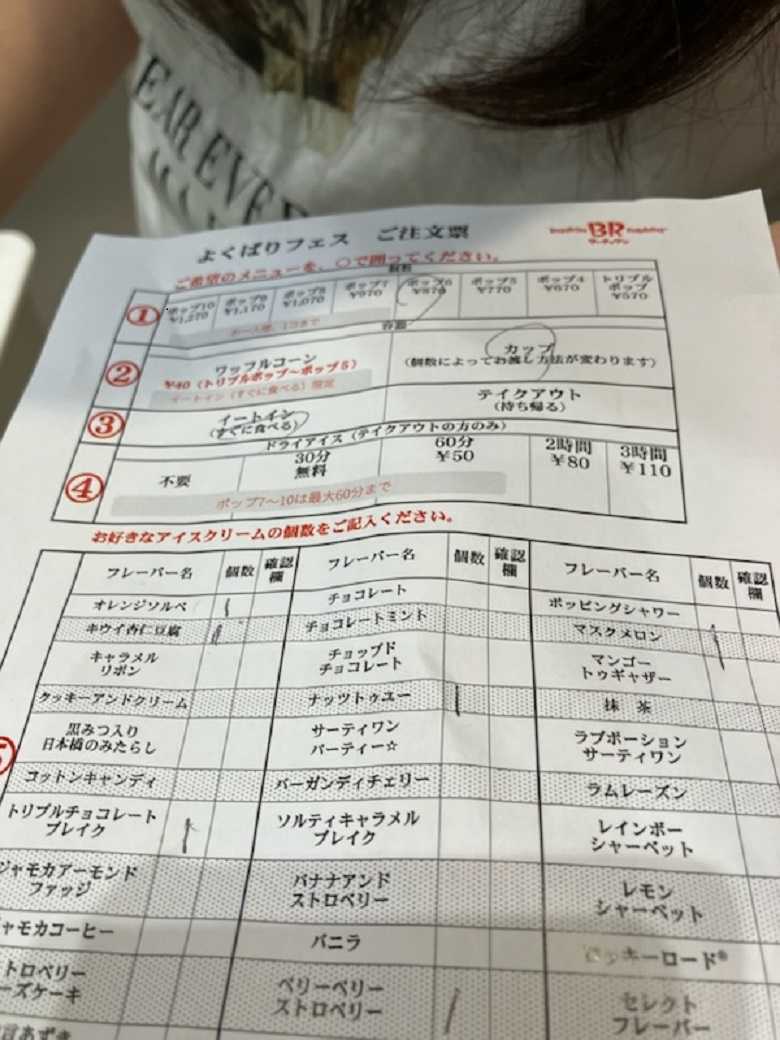 EAR EVE
よくばりフェス ご注文票
BR
サーティワン
ご希望のメニューを、○で囲ってください。
個数
① ポップ10 ポップ9 ポップ8 ポップ7 ポップ6 ポップ5 ポップ4 トリプルポップ
¥1,270 ¥1,170 ¥1,070 ¥970 ¥870 ¥770 ¥670 ¥570
容器
② ワッフルコーン カップ
¥40（トリプルポップ～ポップ5） （個数によってお渡し方法が変わります）
イートイン（すぐに食べる）限定
③ イートイン テイクアウト
（すぐに食べる） （持ち帰る）
ドライアイス（テイクアウトの方のみ）
④ 不要 30分 60分 2時間 3時間
無料 ¥50 ¥80 ¥110
ポップ7～10は最大60分まで
お好きなアイスクリームの個数をご記入ください。
フレーバー名 個数 確認欄 フレーバー名 個数 確認欄 フレーバー名 個数 確認欄
オレンジソルベ 1 チョコレート ポッピングシャワー
キウイ杏仁豆腐 チョコレートミント マスクメロン 1
キャラメルリボン チョップドチョコレート マンゴートゥギャザー
クッキーアンドクリーム ナッツトゥユー 1 抹茶
黒みつ入り日本橋のみたらし サーティワンパーティー☆ ラブポーションサーティワン
コットンキャンディ バーガンディチェリー ラムレーズン
トリプルチョコレートブレイク 1 ソルティキャラメルブレイク レインボーシャーベット
ジャモカアーモンドファッジ バナナアンドストロベリー レモンシャーベット
ャモカコーヒー バニラ ッキーロード®
トロベリーーズケーキ ベリーベリーストロベリー 1 セレクトフレーバー
あずき